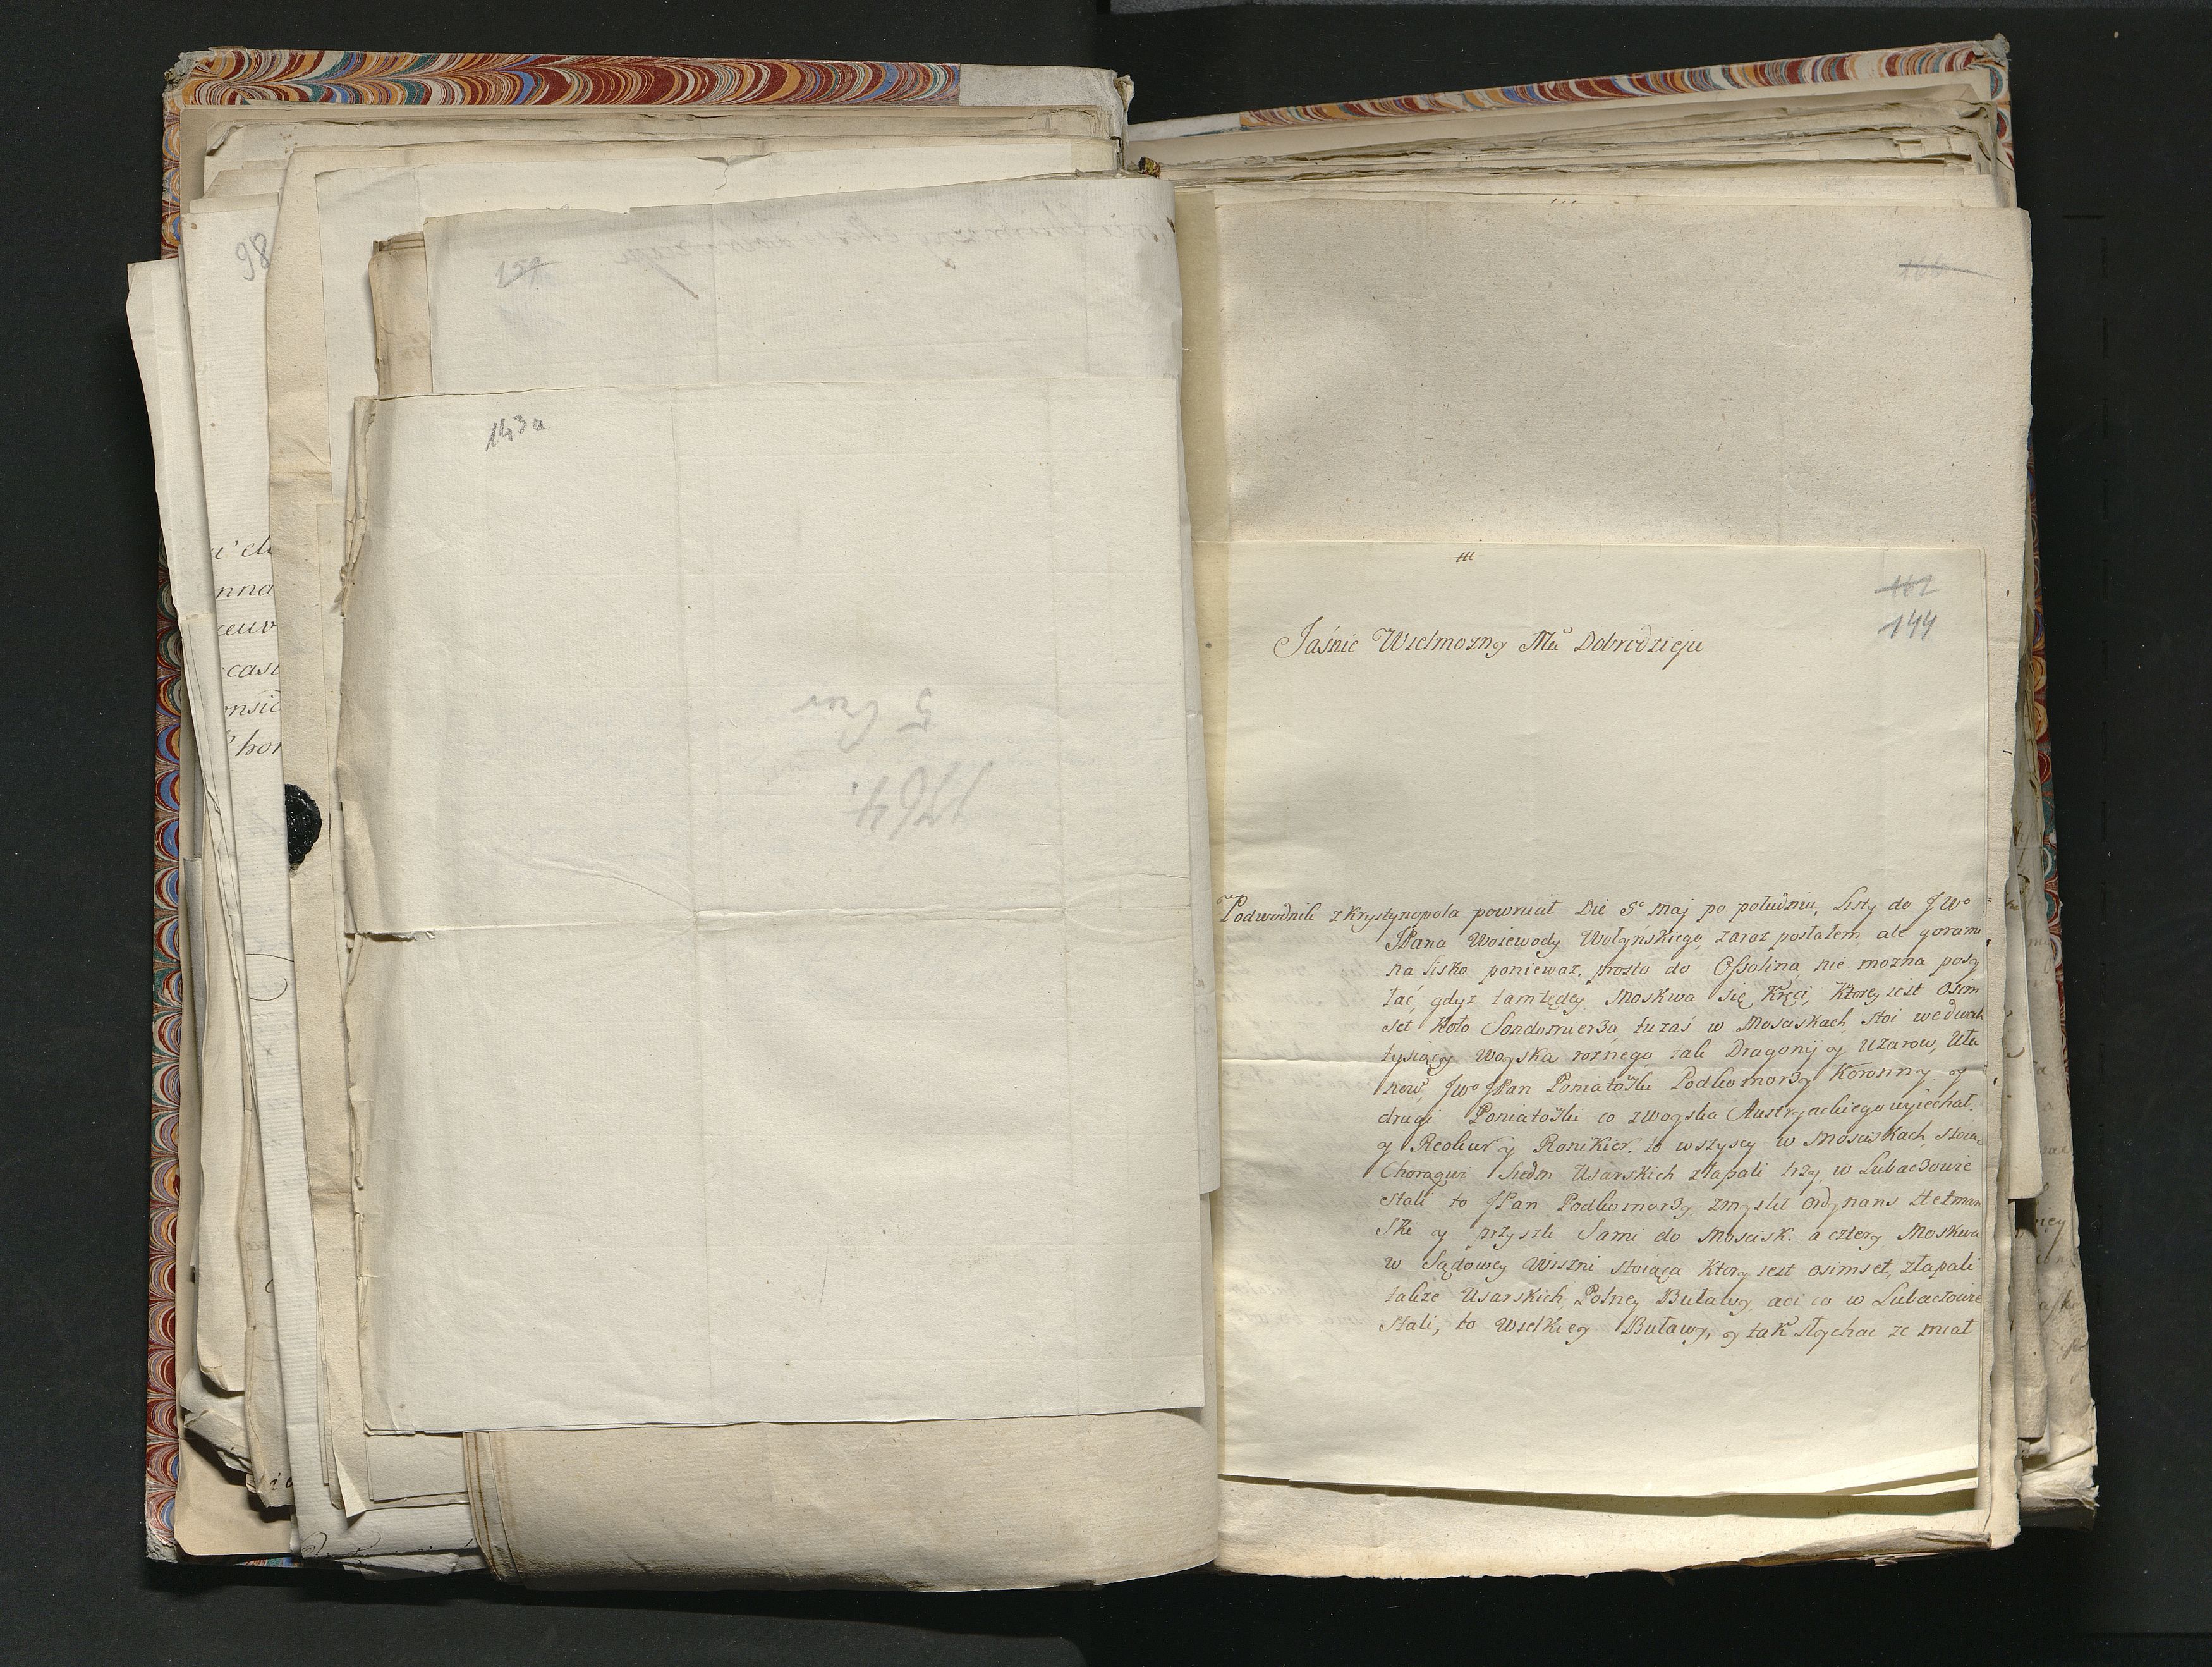 98
u' ele
nna
œuv
casi
onsid
hor
159
143a
5 Cer
1764.
160
162
144
Jaśnie Wielmozny Mci Dobrodzieju
Podwodnik z Krystynopola powrucił Die 5° Maj po południu, Listy do JWo
JPana Woiewody Wołyńskiego, zaraz posłałem, ale gorami
na Lisko poniewaz, prosto do Ossolina, nie mozna posy
łać, gdyz tamtędy Moskwa się Kręci, Ktorey iest osim
set Koło Sondomierza, tu zaś w Mosciskach, stoi we dwah
tysiący Woyska roznego, iako Dragonij y Uzarow, Uła
now, JWo JPan Poniatowski Podkomorzy Koronny, y
drugi Poniatowski co z Woyska Austryackiego wyiechał,
y Reokur y Ronikier, to wszyscy w Mosciskach, stoia
Chorągwi Siedm Usarskich złapali trzy, w Lubaczowie
stali to JPan Podkomorzy zmyslił Ordynans Hetman
ski y przyszli Sami do Moscisk. a cztery Moskwa
w Sądowey Wiszni stoiąca Ktory iest osimset, złapali
takze Usarskich, Polney Buławy, a ci co w Lubaczowie
stali, to Wielkiey Buławy, y tak słychac ze miał